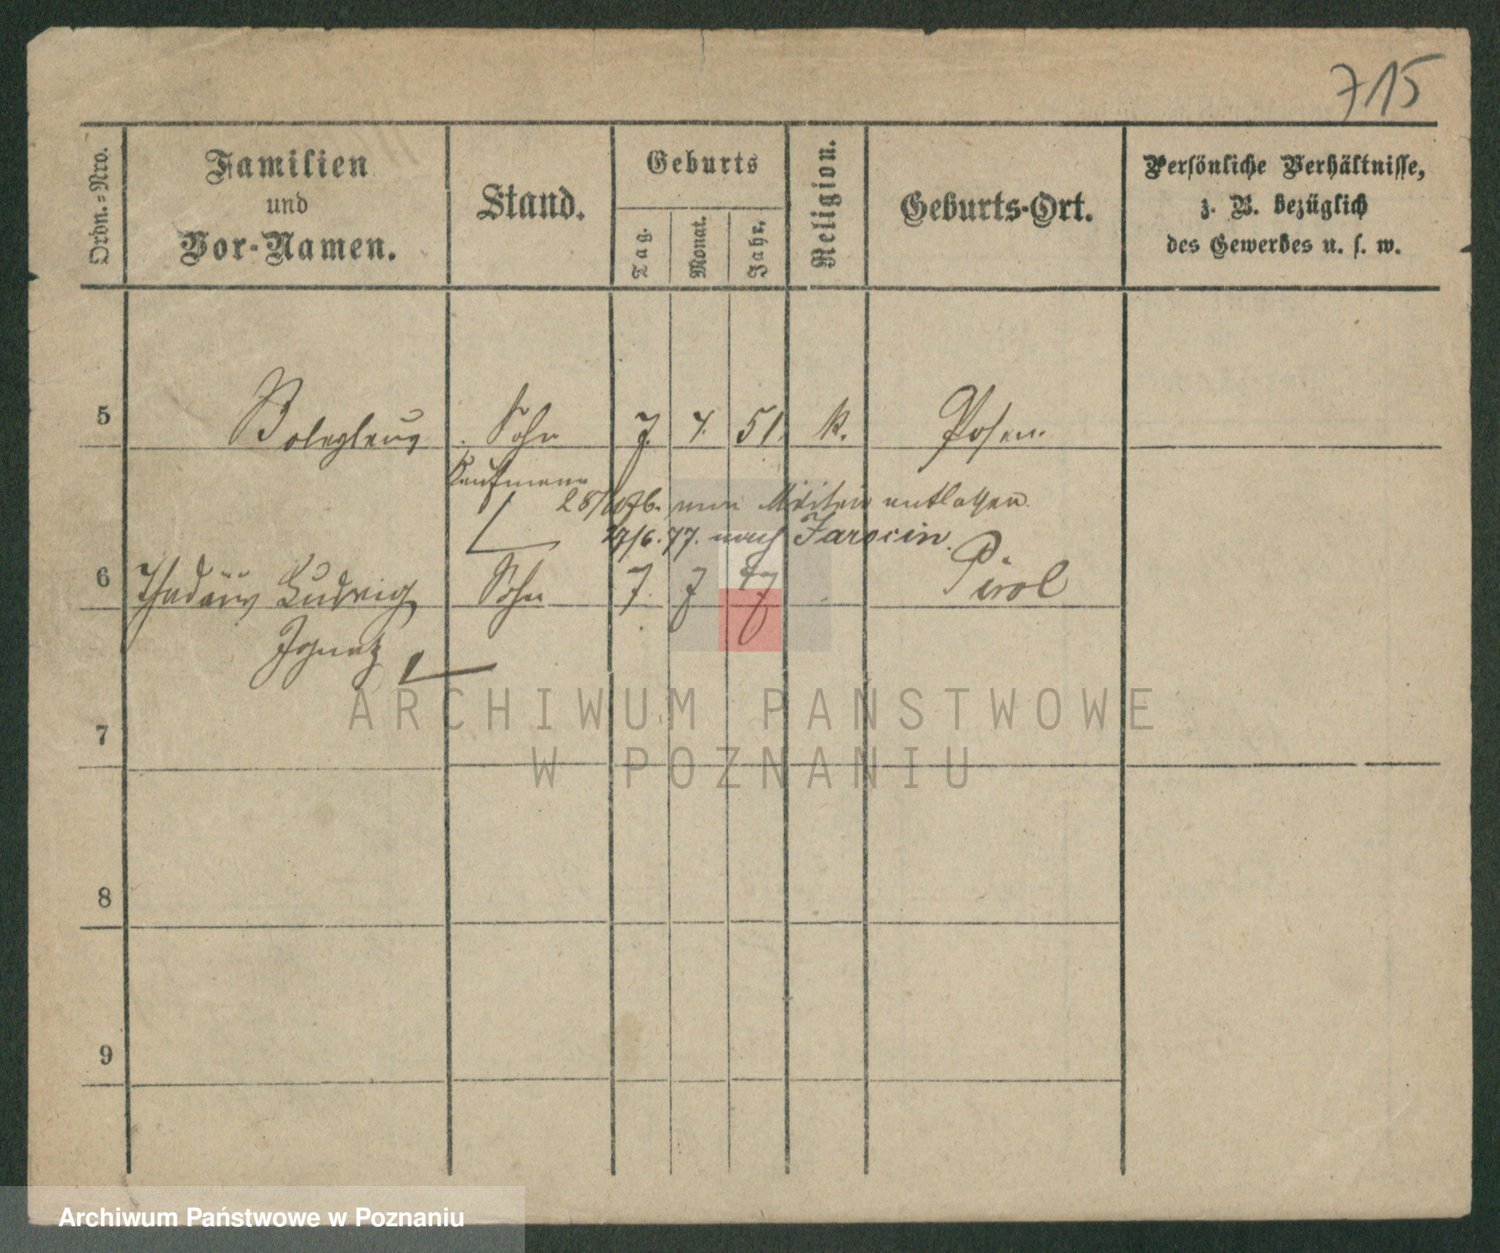 715
Ordn.-Nro.
Familien
und
Vor-Namen.
Stand.
Geburts
Tag.
Monat.
Jahr.
Religion.
Geburts-Ort.
Persönliche Verhältnisse,
z. B. bezüglich
des Gewerbes u. s. w.
5 Boleslaus Sohn 7. 4. 51. k. Posen.
Kaufmann
28/ 76. vom Militair entlassen.
/6. 77. nach Jarocin.
6 Thadäus Ludwig Sohn 7. 7 77
Ignatz
7
8
9
ARCHIWUM PAŃSTWOWE
W POZNANIU
Archiwum Państwowe w Poznaniu